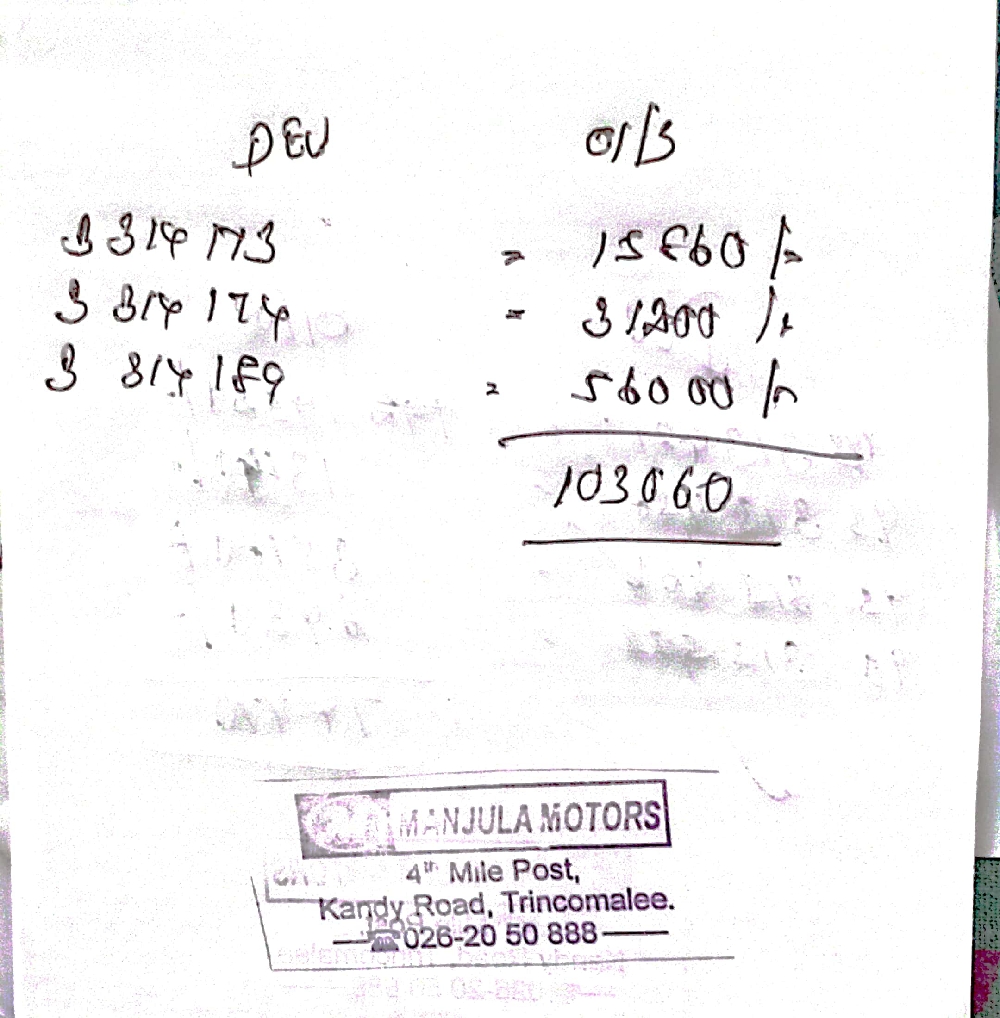 DEU O/S
3314173 = 15860/=
3314174 = 31200/=
3314189 = 56000/=
103060
MANJULA MOTORS
4th Mile Post,
Kandy Road, Trincomalee.
026-20 50 888